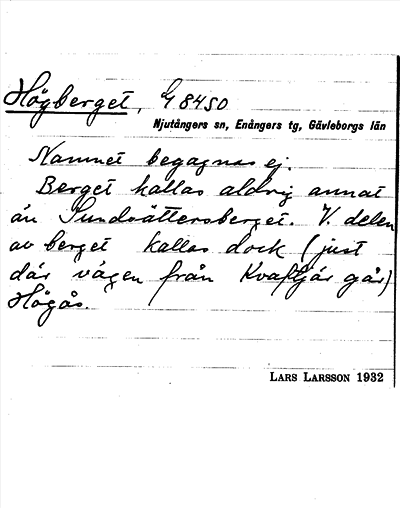 Högberget, G 8450
Njutångers sn, Enångers tg, Gävleborgs län
Namnet begagnas ej.
Berget kallas aldrig annat
än Sundsättersberget. V. delen
av berget kallas dock (just
där vägen från går)
Högås.
LARS LARSSON 1932